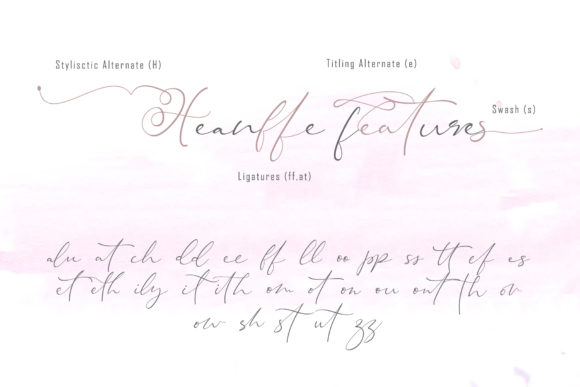 Stylisctic Alternate (H)
Titling Alternate (e)
Swash (s)
Heanffe features
Ligatures (ff,at)
alu at ch dd ee ff ll oo pp ss tt ef es
et eth ily it ith om ot on ou ont th or
ow sh st ut zz